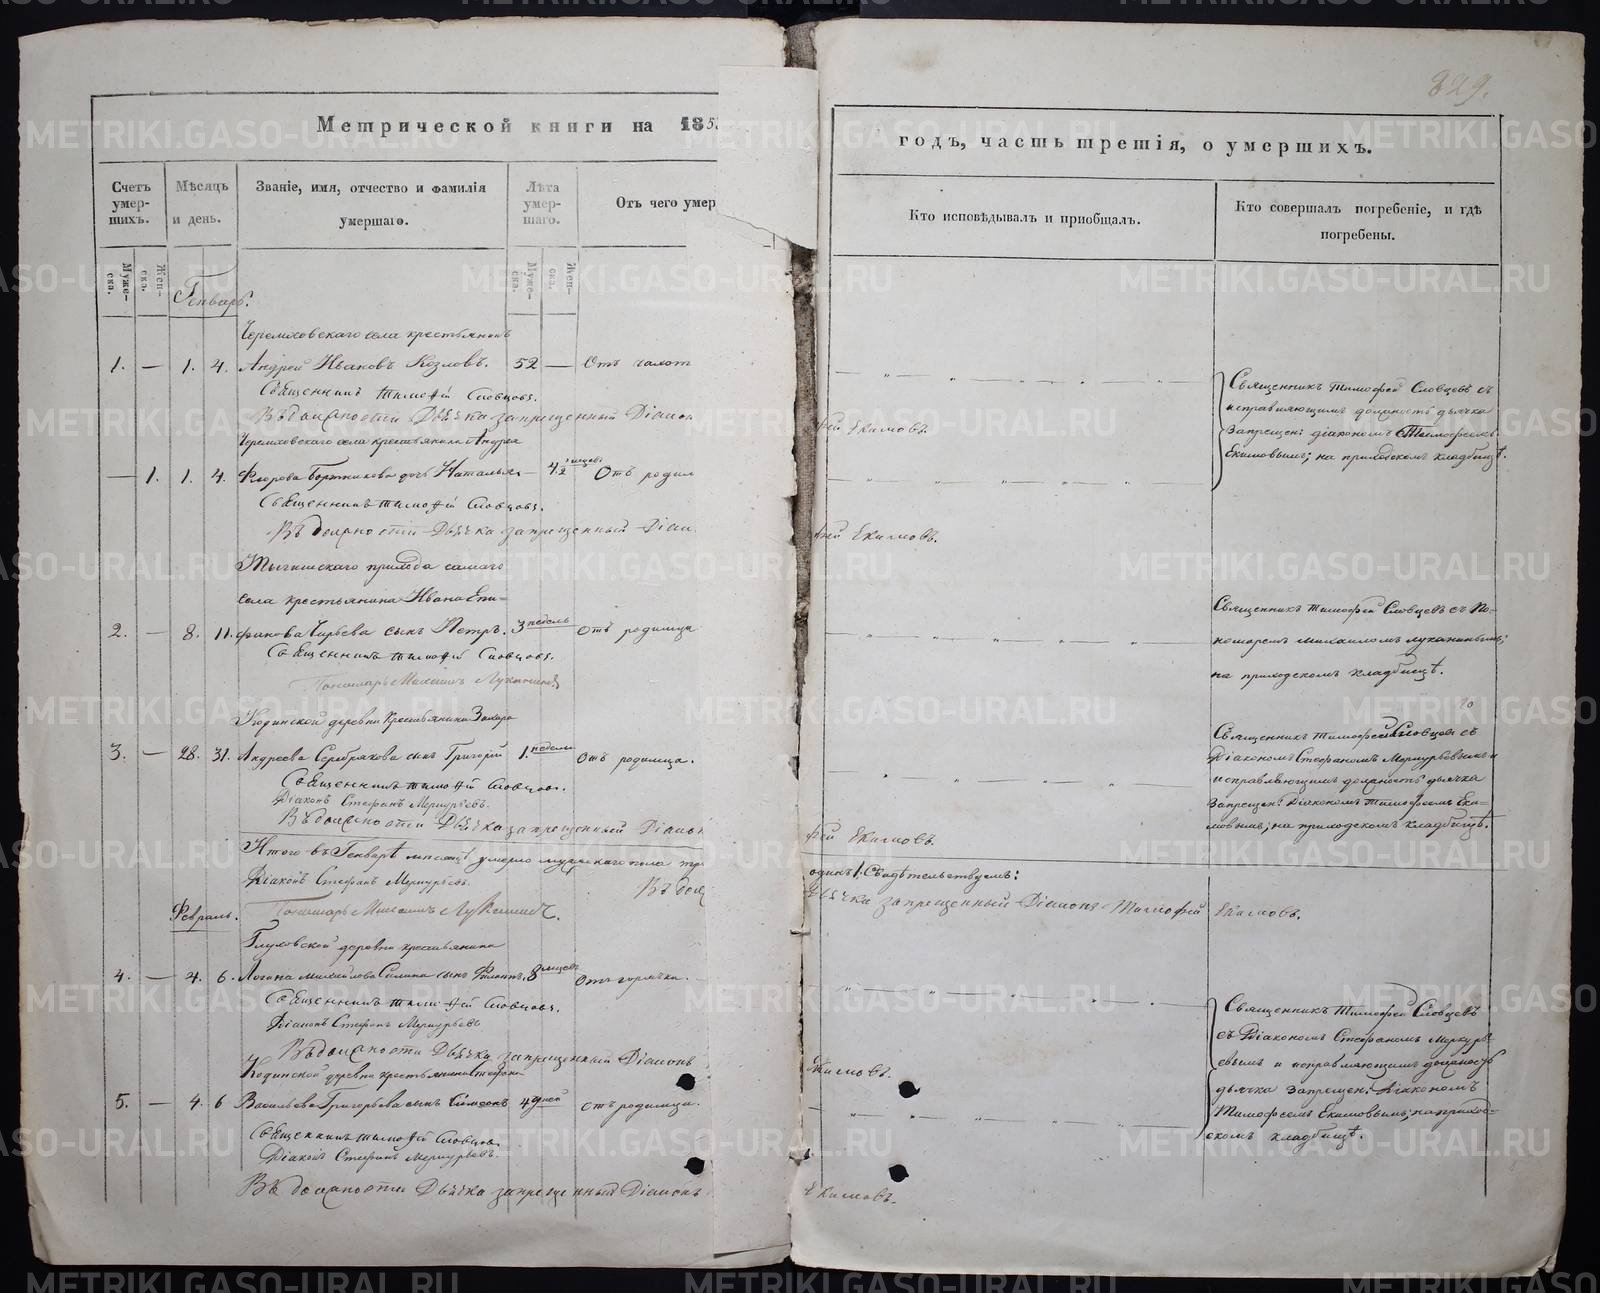 829.
Метрической книги на 185
годъ, часть третія, о умершихъ.
Счетъ умер-шихъ.
Мѣсяцъ и день.
Званіе, имя, отчество и фамилія умершаго.
Лѣта умер-шаго.
Отъ чего умер
Кто исповѣдывалъ и приобщалъ.
Кто совершалъ погребеніе, и гдѣ погребены.
Муже-ска.
Жен-ска.
Муже-ска.
Жен-ска.
Генварь.
Черемховскаго села крестьянинъ
1. — 1. 4. Андрей Ивановъ Козловъ. 52 — Отъ чахот
Священникъ Тимоѳей Словцовъ.
Въ должности Дьячка запрещенный Діакон
фей Екимовъ.
Священникъ Тимофей Словцевъ съ
исправляющимъ должность дьячка
Запрещен: діакономъ Тимофеемъ
Екимовымъ; на приходскомъ кладбищѣ.
Черемховскаго села крестьянина Андрея
— 1. 1. 4. Федорова дочь Наталья. — 4 1/2 Отъ родим
Священникъ Тимоѳей Словцовъ.
Въ должности Дьячка запрещенный Діак
фей Екимовъ.
прихода самаго
села крестьянина Ивана Епи-
2. — 8. 11. фанова сынъ Петръ. 3 недель Отъ родимца
Священникъ Тимоѳей Словцовъ.
Пономарь Михаилъ Луканинъ
Священникъ Тимофей Словцевъ съ По-
номаремъ Михаиломъ Луканинымъ;
на приходскомъ кладбищѣ.
Кодинской деревни Крестьянина Захара
3. — 28. 31. Андреева Серебрякова сынъ Григорій 1. недели Отъ родимца.
Священникъ Тимоѳей Словцовъ.
Діаконъ Стефанъ Меркурьевъ.
Въ должности Дьячка запрещенный Діакон
фей Екимовъ.
Священникъ Тимофей Словцевъ съ
Діакономъ Стефаномъ Меркурьевымъ и
исправляющимъ должность дьячка
Запрещен: Діакономъ Тимофеемъ Еки-
мовымъ; на приходскомъ кладбищѣ.
Итого въ Генварѣ месяцѣ умерло мужескаго пола тр
одинъ 1. Свидѣтельствуемъ:
Діаконъ Стефанъ Меркурьевъ.
Въ дол
Дьячка запрещенный Діаконъ Тимофей Екимовъ.
Пономарь Михаилъ Луканинъ.
Февраль.
Глуховской деревни крестьянина
4. — 4. 6. Логина Михайлова сынъ Филиппъ. 8 месяц Отъ горячки.
Священникъ Тимоѳей Словцовъ.
Діаконъ Стефанъ Меркурьевъ
Въ должности Дьячка запрещенный Діаконъ
Екимовъ.
Священникъ Тимофей Словцевъ
съ Діакономъ Стефаномъ Меркурь-
евымъ и исправляющимъ должность
дьячка Запрещен: Діакономъ
Тимофеемъ Екимовымъ; на приход-
скомъ кладбищѣ.
Кодинской деревни крестьянина Стефана
5. — 4. 6 Васильева Григорьева сынъ Симеонъ 4 дней отъ родимца.
Священникъ Тимоѳей Словцовъ.
Діаконъ Стефанъ Меркурьевъ.
Въ должности Дьячка запрещенный Діаконъ
Екимовъ.
METRIKI.GASO-URAL.RU